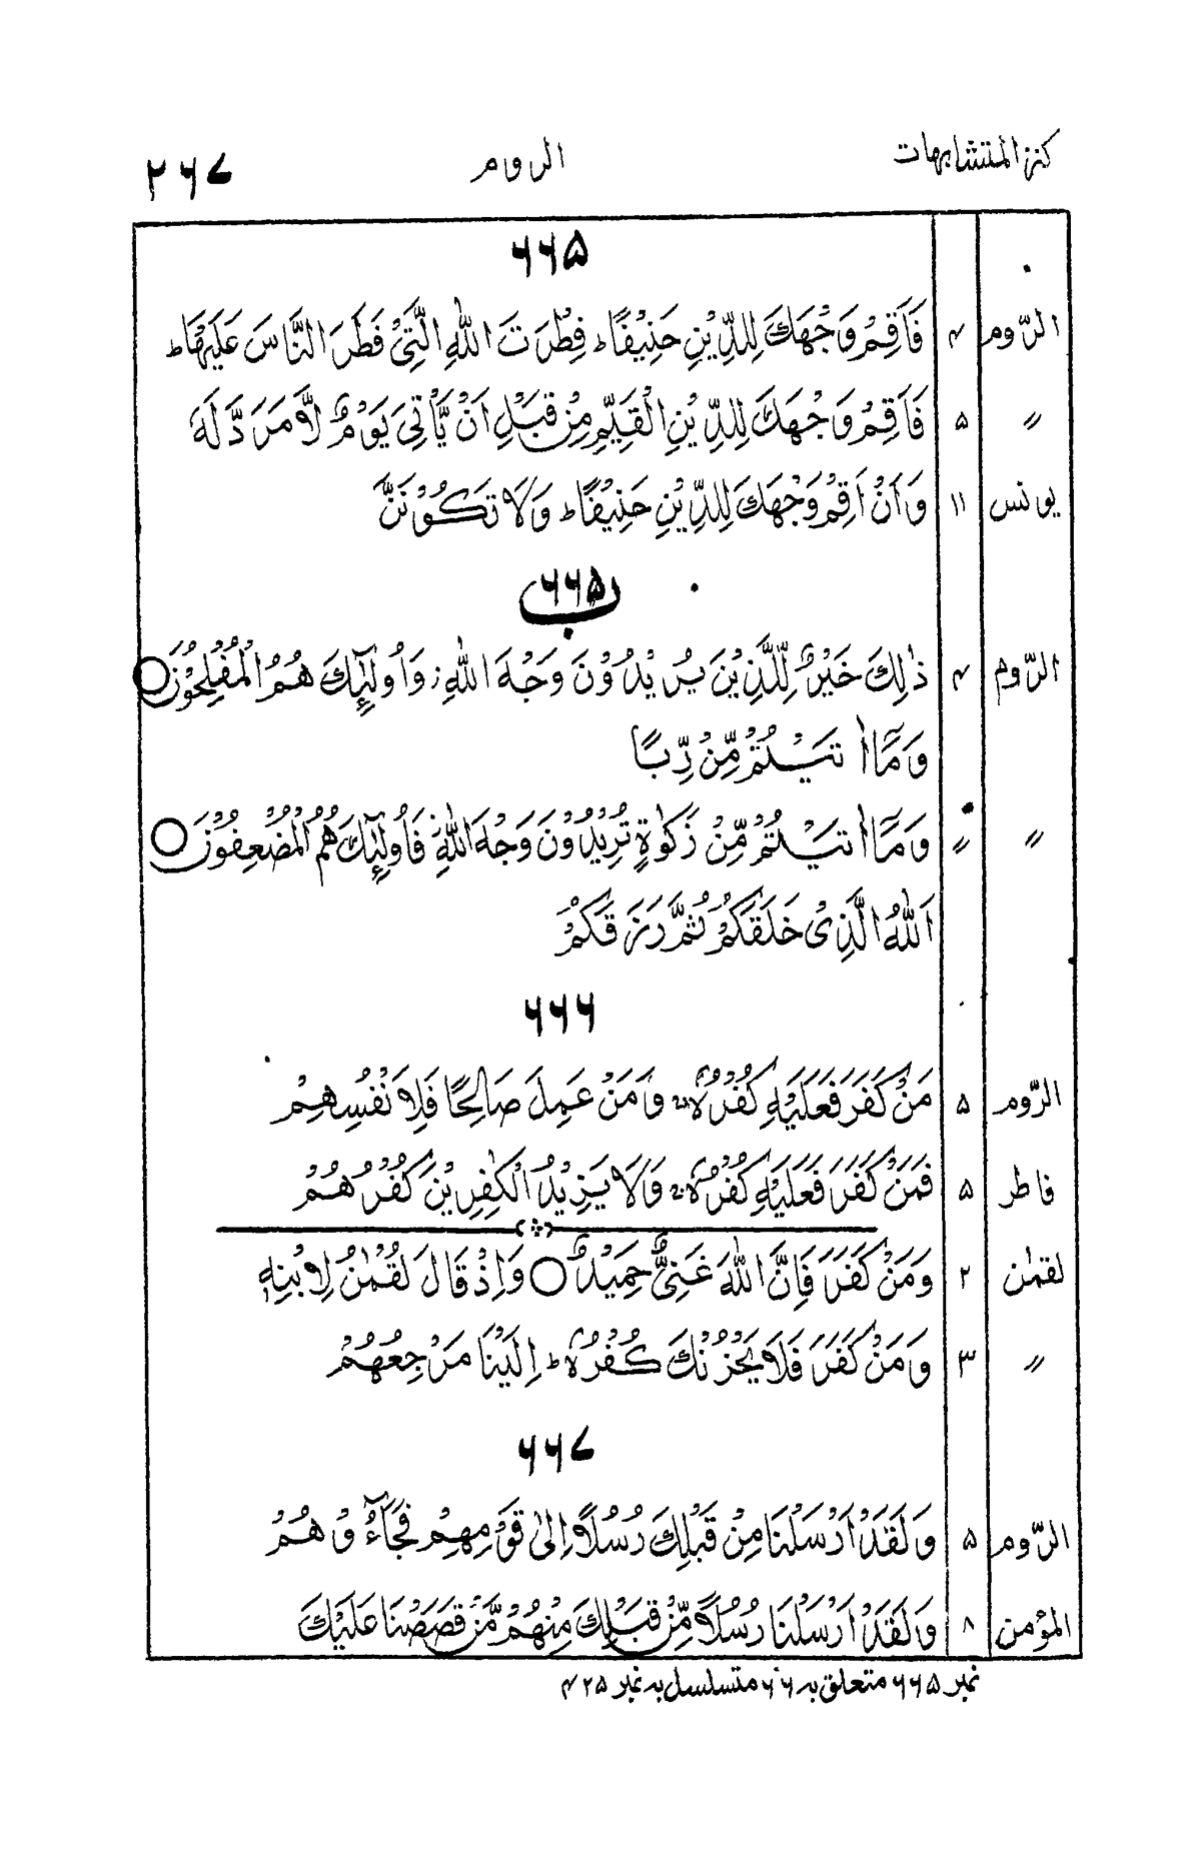 كنز المتشابهات الروم ۲۶۷
۶۶۵
الرّوم ۴ فَاَقِمْ وَجْهَكَ لِلدِّيْنِ حَنِيْفًا ؕ فِطْرَتَ اللّٰهِ الَّتِىْ فَطَرَ النَّاسَ عَلَيْهَا ؕ
〃 ۵ فَاَقِمْ وَجْهَكَ لِلدِّيْنِ الْقَيِّمِ مِنْ قَبْلِ اَنْ يَّاْتِىَ يَوْمٌ لَّا مَرَدَّ لَهٗ
يونس ۱۱ وَاَنْ اَقِمْ وَجْهَكَ لِلدِّيْنِ حَنِيْفًا ؕ وَلَا تَكُوْنَنَّ
۶۶۵ ب
الرّوم ۴ ذٰلِكَ خَيْرٌ لِّلَّذِيْنَ يُرِيْدُوْنَ وَجْهَ اللّٰهِ ز وَاُولٰٓئِكَ هُمُ الْمُفْلِحُوْنَ ○
وَمَآ اٰتَيْتُمْ مِّنْ رِّبًا
〃 〃 وَمَآ اٰتَيْتُمْ مِّنْ زَكٰوةٍ تُرِيْدُوْنَ وَجْهَ اللّٰهِ فَاُولٰٓئِكَ هُمُ الْمُضْعِفُوْنَ ○
اَللّٰهُ الَّذِىْ خَلَقَكُمْ ثُمَّ رَزَقَكُمْ
۶۶۶
الرّوم ۵ مَنْ كَفَرَ فَعَلَيْهِ كُفْرُهٗ ۚ وَمَنْ عَمِلَ صَالِحًا فَلِاَنْفُسِهِمْ
فاطر ۵ فَمَنْ كَفَرَ فَعَلَيْهِ كُفْرُهٗ ؕ وَلَا يَزِيْدُ الْكٰفِرِيْنَ كُفْرُهُمْ
لقمٰن ۲ وَمَنْ كَفَرَ فَاِنَّ اللّٰهَ غَنِىٌّ حَمِيْدٌ ○ وَاِذْ قَالَ لُقْمٰنُ لِابْنِهٖ
〃 ۳ وَمَنْ كَفَرَ فَلَا يَحْزُنْكَ كُفْرُهٗ ؕ اِلَيْنَا مَرْجِعُهُمْ
۶۶۷
الرّوم ۵ وَلَقَدْ اَرْسَلْنَا مِنْ قَبْلِكَ رُسُلًا اِلٰى قَوْمِهِمْ فَجَآءُوْهُمْ
المؤمن ۸ وَلَقَدْ اَرْسَلْنَا رُسُلًا مِّنْ قَبْلِكَ مِنْهُمْ مَّنْ قَصَصْنَا عَلَيْكَ
نمبر ۶۶۵ متعلق به ۶۰۶ متسلسل به نمبر ۴۲۵